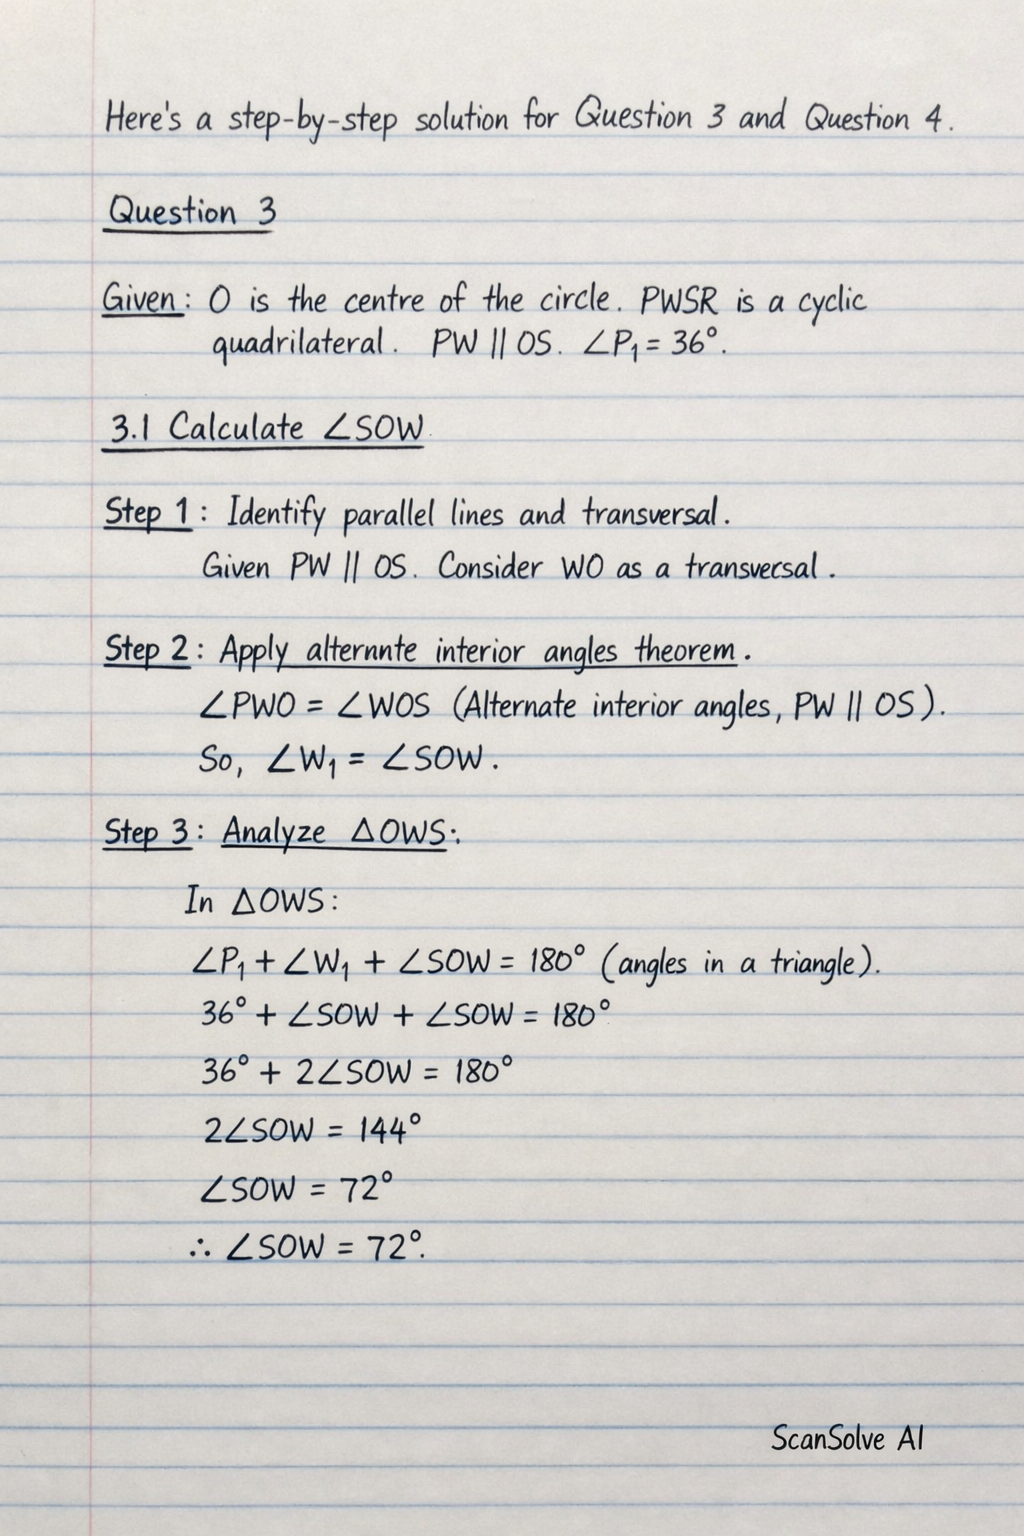 Here's a step-by-step solution for Question 3 and Question 4.
Question 3
Given: O is the centre of the circle. PWSR is a cyclic
quadrilateral. PW || OS. ∠P₁ = 36°.
3.1 Calculate ∠SOW
Step 1: Identify parallel lines and transversal.
Given PW || OS. Consider WO as a transversal.
Step 2: Apply alternnte interior angles theorem.
∠PWO = ∠WOS (Alternate interior angles, PW || OS).
So, ∠W₁ = ∠SOW.
Step 3: Analyze △OWS:
In △OWS:
∠P₁ + ∠W₁ + ∠SOW = 180° (angles in a triangle).
36° + ∠SOW + ∠SOW = 180°
36° + 2∠SOW = 180°
2∠SOW = 144°
∠SOW = 72°
∴ ∠SOW = 72°.
ScanSolve AI